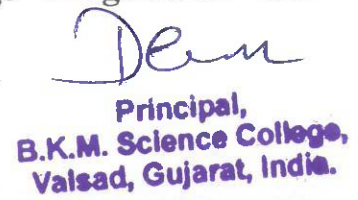 Principal,
B.K.M. Science College,
Valsad, Gujarat, India.